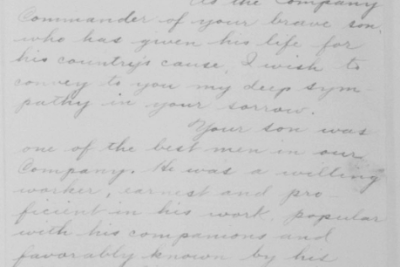 As the Company
Commander of your brave son,
who has given his life for
his country's cause, I wish to
convey to you my deep sym-
pathy in your sorrow.
Your son was
one of the best men in our
Company. He was a willing
worker, earnest and pro-
ficient in his work, popular
with his companions and
favorably known by his